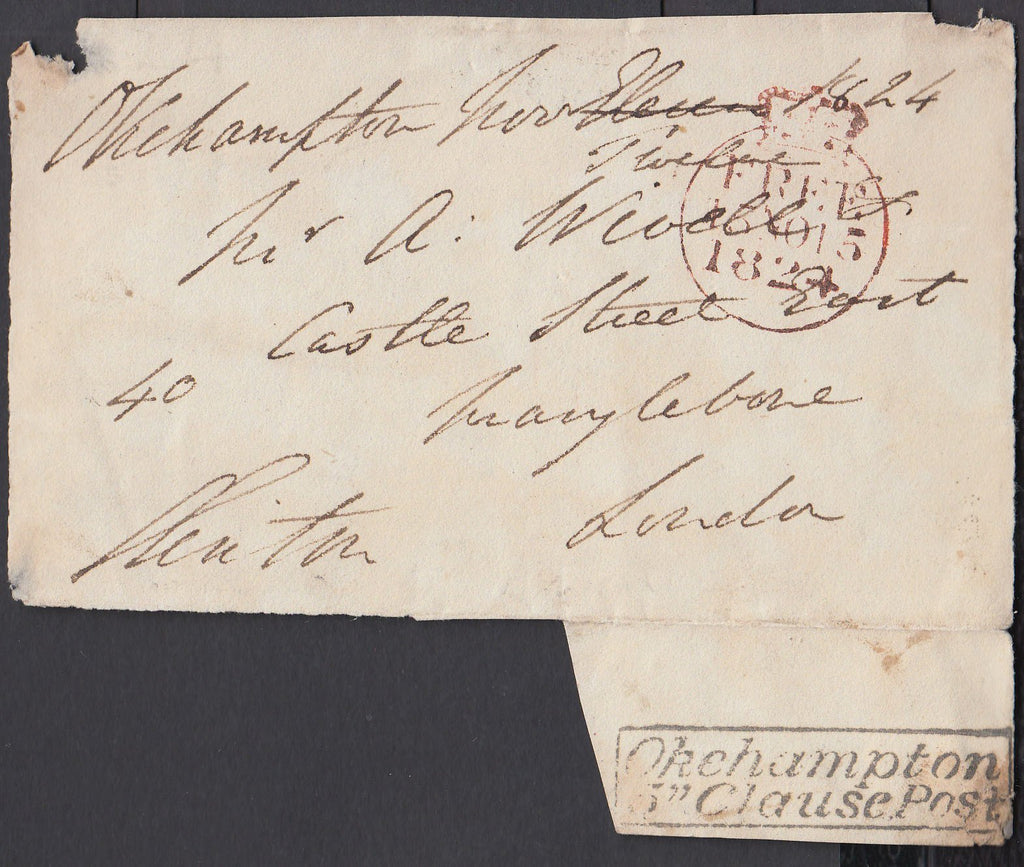 Okehampton Nov Eleven 1824
Twelve
Mr A: Wivell
Castle Street East
40
Marylebone
London
FREE
15 NO 15
1824
Okehampton
5" Clause Post